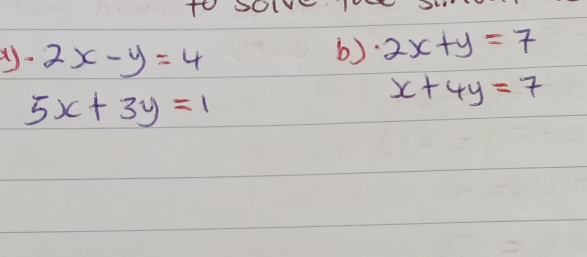 to solve
a). 2x - y = 4
5x + 3y = 1
b). 2x + y = 7
x + 4y = 7